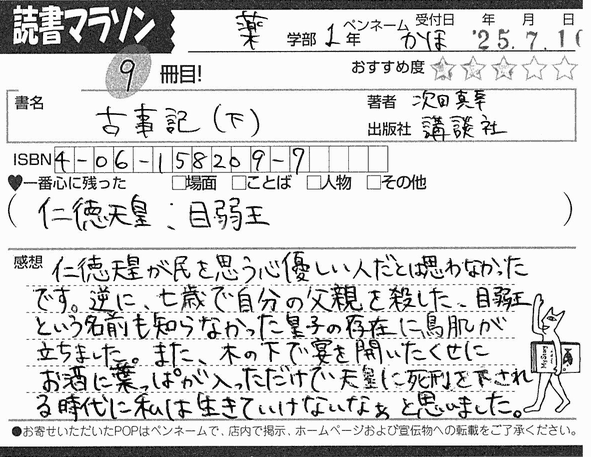 読書マラソン
薬 学部 1年 ペンネーム かほ 受付日 年 月 日 '25.7.10
9 冊目! おすすめ度 ★★★☆☆
書名 古事記(下) 著者 次田真幸
出版社 講談社
ISBN 4-06-158209-7
♥一番心に残った □場面 □ことば □人物 □その他
(仁徳天皇、目弱王)
感想 仁徳天皇が民を思う心優しい人だとは思わなかった
です。逆に、七歳で自分の父親を殺した、目弱王
という名前も知らなかった皇子の存在に鳥肌が
立ちました。また、木の下で宴を開いたくせに
お酒に葉っぱが入っただけで天皇に死刑を下され
る時代に私は生きていけないなぁと思いました。
●お寄せいただいたPOPはペンネームで、店内で掲示、ホームページおよび宣伝物への転載をご了承ください。